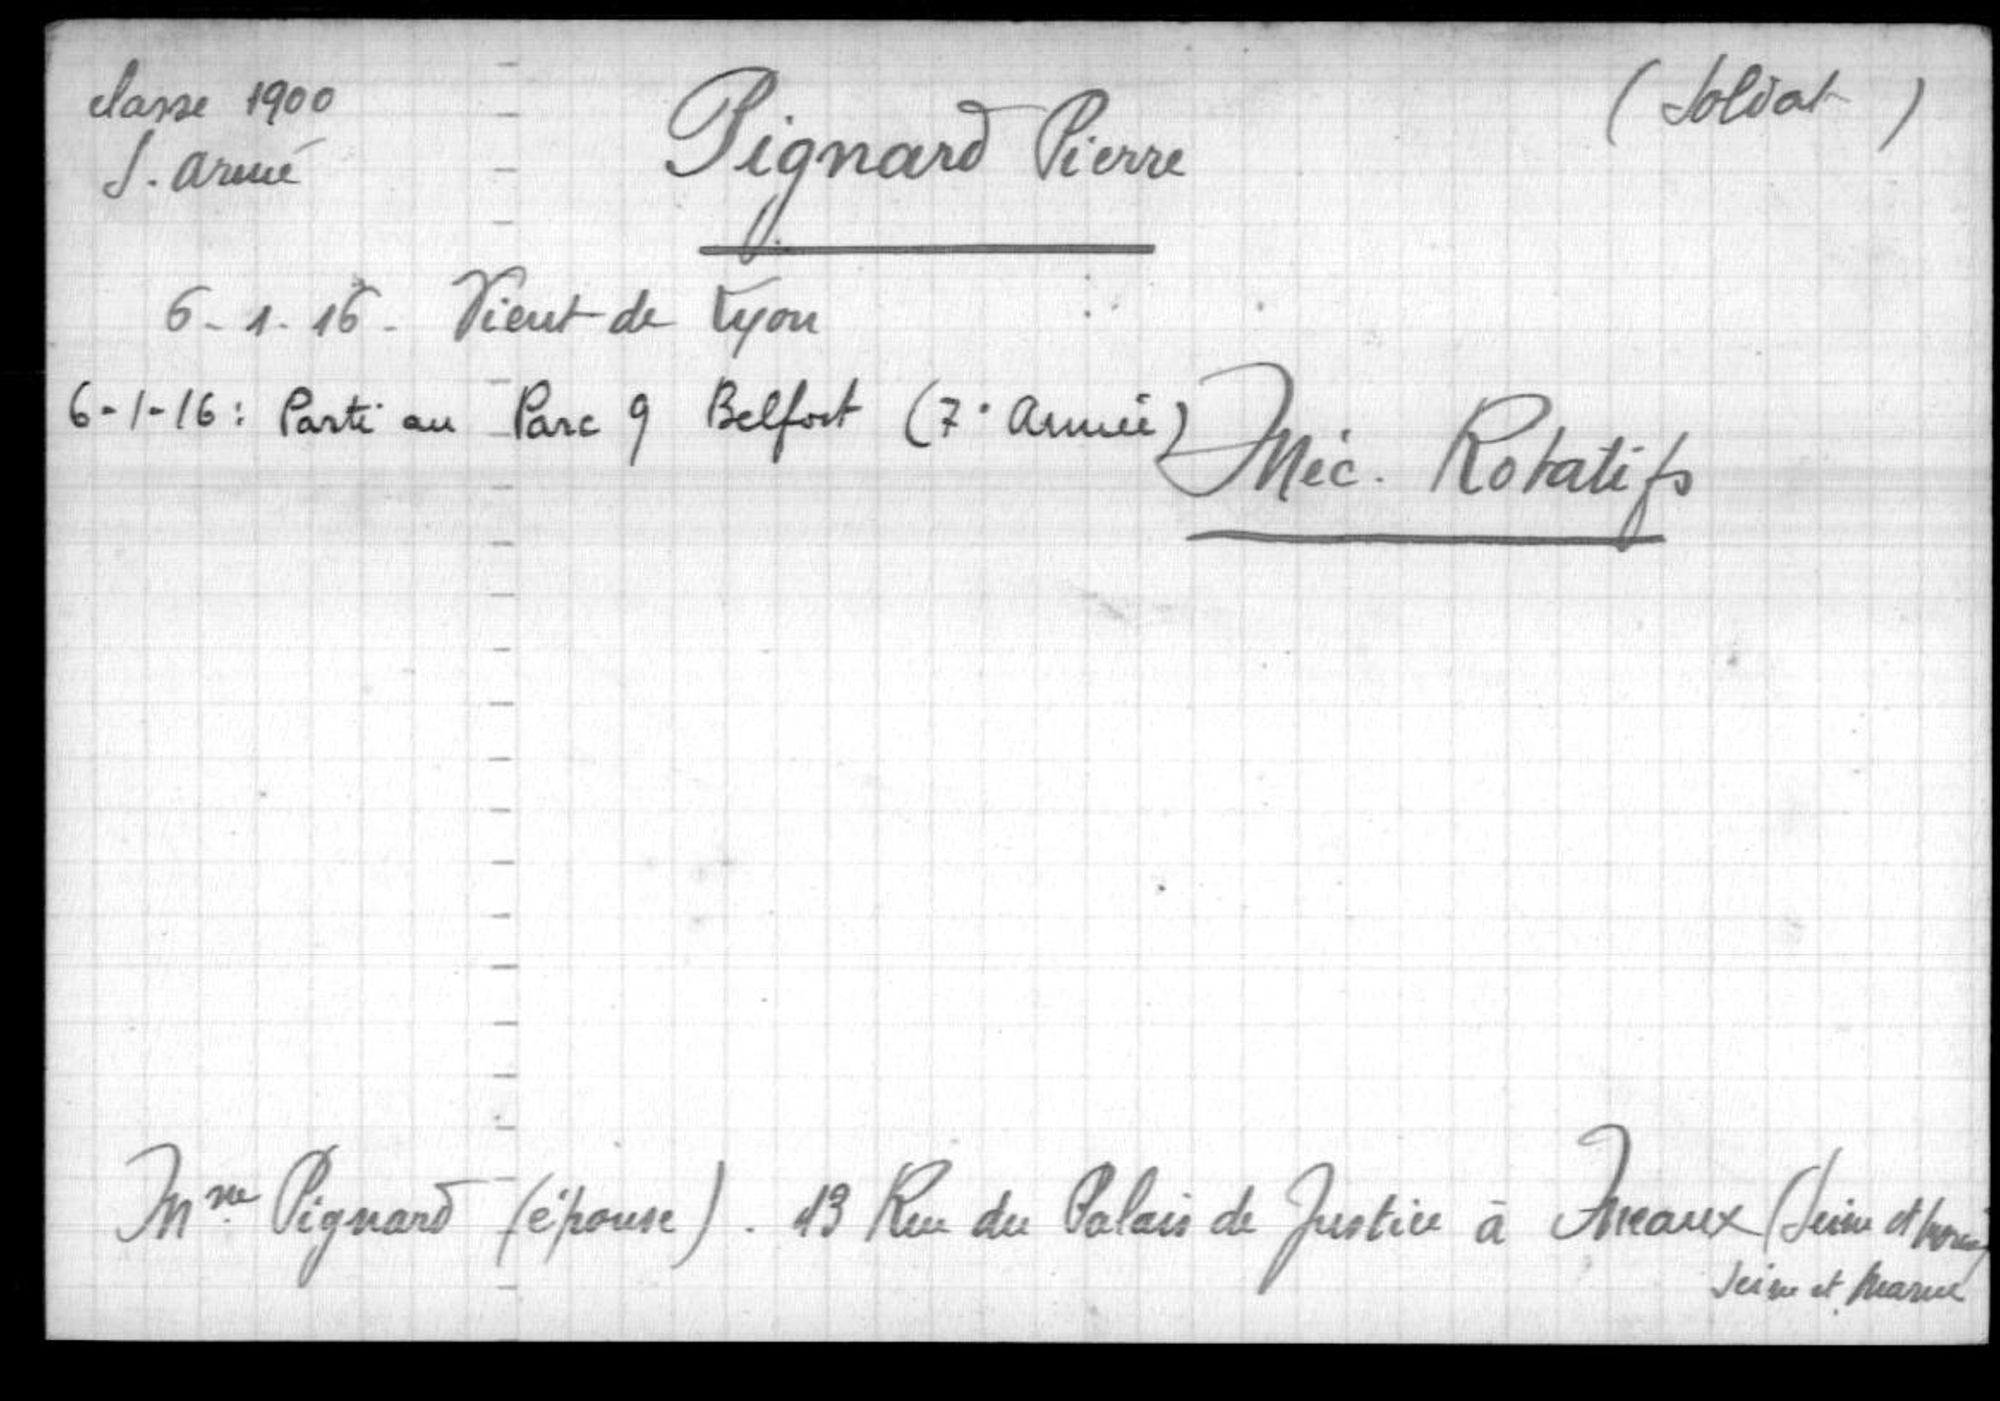 classe 1900
S. Armé
Pignard Pierre
(Soldat)
6-1-16- Vient de Lyon
6-1-16: Parti au Parc 9 Belfort (7e Armée)
Méc. Rotatifs
Mme Pignard (épouse). 13 Rue du Palais de Justice à Meaux (Seine et
Seine et Marne